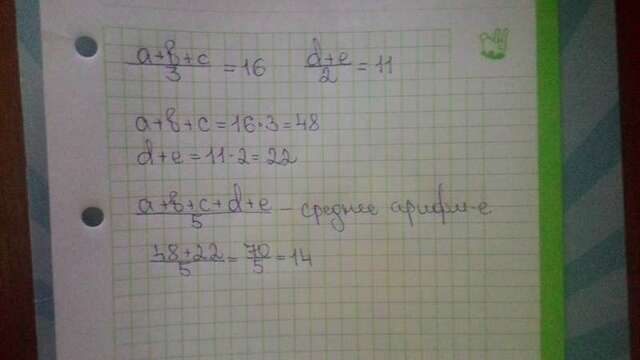 (a+b+c)/3 = 16    (d+e)/2 = 11
a+b+c = 16·3 = 48
d+e = 11·2 = 22
(a+b+c+d+e)/5 – среднее арифм-е
(48+22)/5 = 70/5 = 14